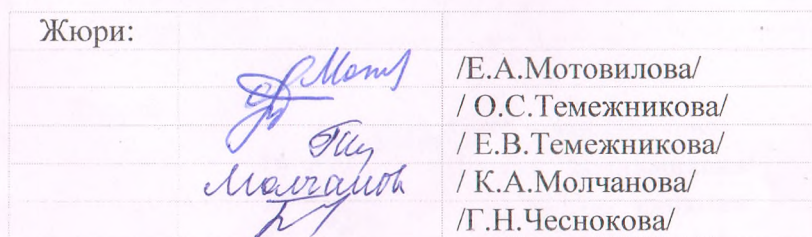 Жюри:
/Е.А.Мотовилова/
/ О.С.Темежникова/
/ Е.В.Темежникова/
/ К.А.Молчанова/
/Г.Н.Чеснокова/